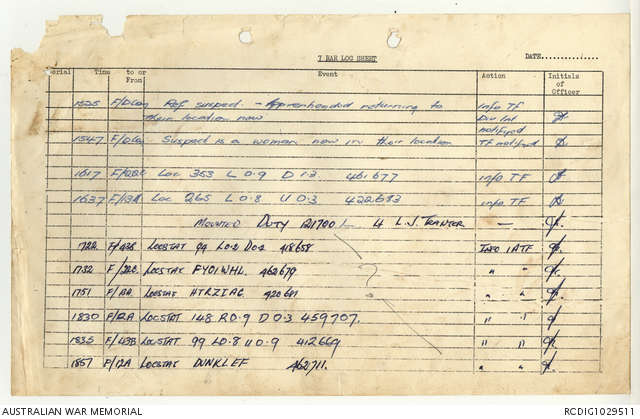 7 RAR LOG SHEET DATE..............
Serial Time to or From Event Action Initials of Officer
1525 F/D Coy Ref suspect - Apprehended returning to Info TF
their location now Div Int notified
1547 F/D Coy Suspect is a woman now in their location TF notified
1617 Loc 353 L 0.9 D 1.3 461677 info TF
1637 Loc 265 L 0.8 U 0.3 info TF
MOUNTED DUTY 121700 L.J. TRANTER —
1722 F/43B LOCSTAT 99 L0.2 D0.2 418658 INFO 1 ATF
1732 LOCSTAT FYOIWHL 462679 " "
1751 LOCSTAT HTRZIAC " "
1830 LOCSTAT 148 R0.9 D 0.3 459707. " "
1835 F/43B LOCSTAT 99 L0.8 U0.9 412669 " "
1857 F/12A LOCSTAT DUNKLEF 462711. " "
AUSTRALIAN WAR MEMORIAL RCDIG1029511